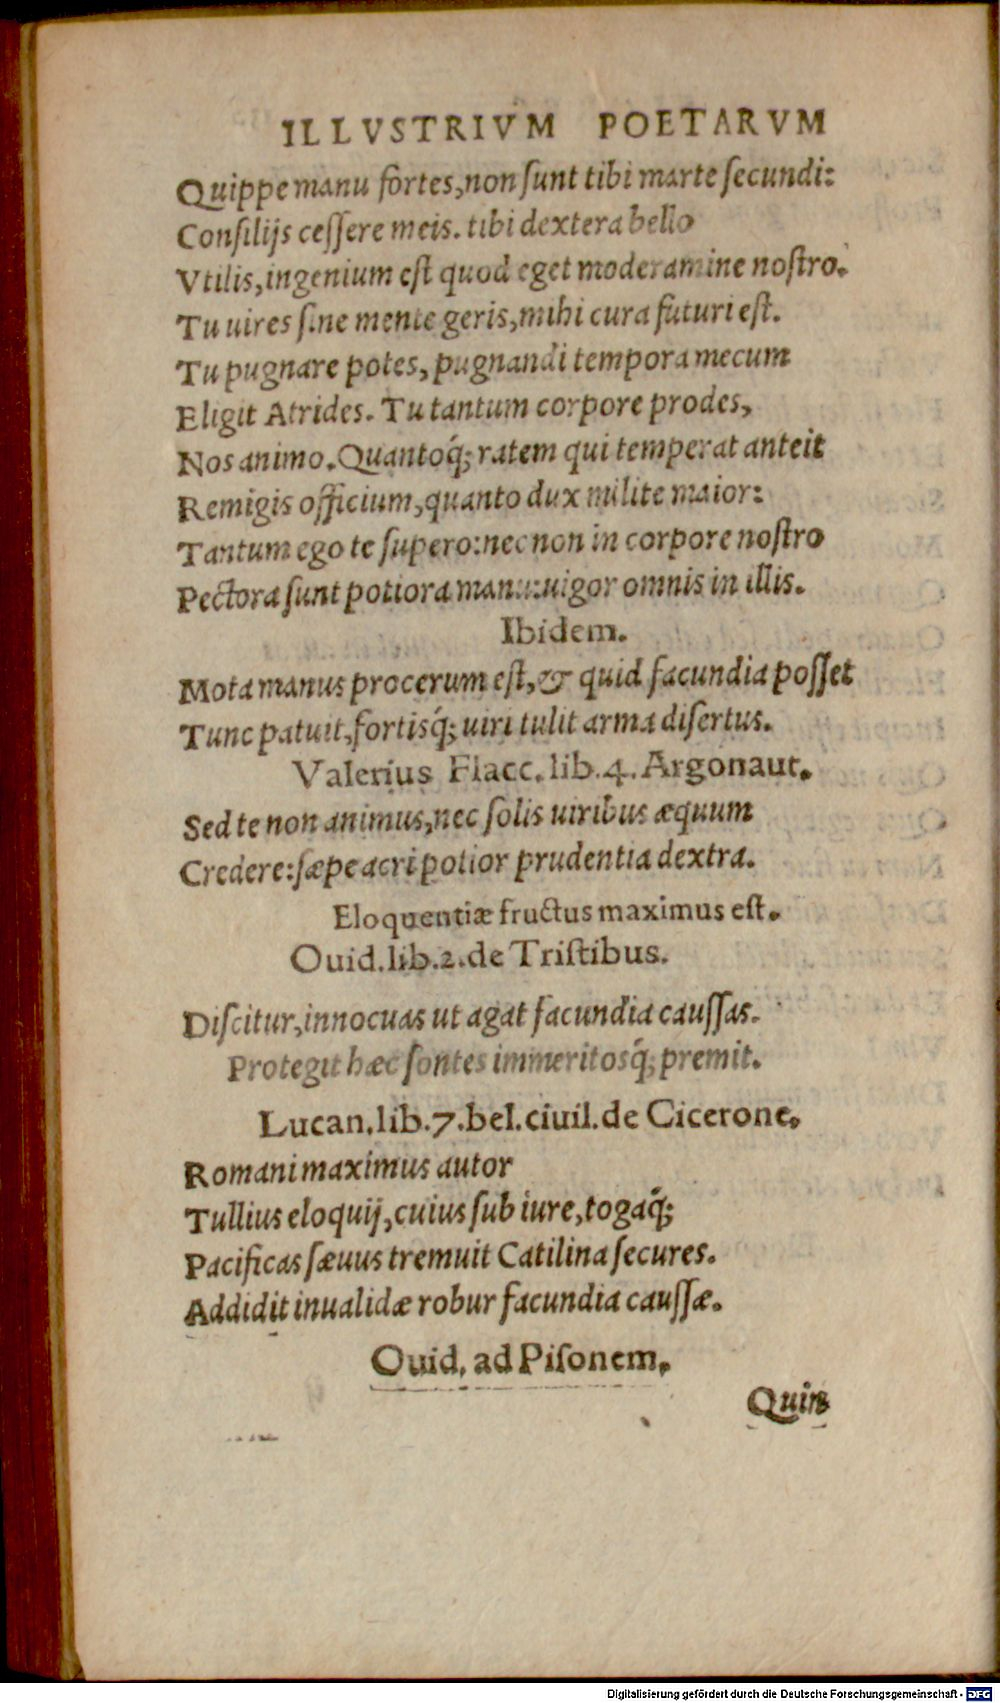 ILLVSTRIVM POETARVM
Quippe manu fortes, non ſunt tibi marte ſecundi:
Conſilijs ceſſere meis. tibi dextera bello
Vtilis, ingenium eſt quod eget moderamine noſtro.
Tu uires ſine mente geris, mihi cura futuri eſt.
Tu pugnare potes, pugnandi tempora mecum
Eligit Atrides. Tu tantum corpore prodes,
Nos animo. Quantoq́; ratem qui temperat anteit
Remigis officium, quanto dux milite maior:
Tantum ego te ſupero: nec non in corpore noſtro
Pectora ſunt potiora manu: uigor omnis in illis.
Ibidem.
Mota manus procerum eſt, & quid facundia poſſet
Tunc patuit, fortisq́; uiri tulit arma diſertus.
Valerius Flacc. lib. 4. Argonaut.
Sed te non animus, nec ſolis uiribus æquum
Credere: ſæpe acri potior prudentia dextra.
Eloquentiæ fructus maximus eſt.
Ouid. lib. 2. de Triſtibus.
Diſcitur, innocuas ut agat facundia cauſſas.
Protegit hæc ſontes immeritosq́; premit.
Lucan. lib. 7. bel. ciuil. de Cicerone.
Romani maximus autor
Tullius eloquij, cuius ſub iure, togaq́;
Pacificas ſæuus tremuit Catilina ſecures.
Addidit inualidæ robur facundia cauſſæ.
Ouid. ad Piſonem.
Quin
Digitalisierung gefördert durch die Deutsche Forschungsgemeinschaft - DFG